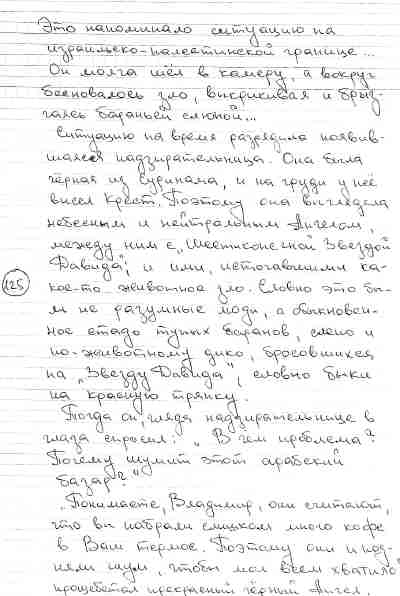 Это напоминало ситуацию на
израильско-палестинской границе...
Он молча шёл в камеру, а вокруг
бесновалось зло, выкрикивая и брыз-
гаясь бараньей слюной...
Ситуацию на время разрядила появив-
шаяся надзирательница. Она была
чёрная из Суринама, и на груди у неё
висел крест. Поэтому она выглядела
небесным и нейтральным Ангелом,
между ним с „Шестиконечной Звездой
Давида", и ими, источавшими ка-
125
кое-то животное зло. Словно это бы-
ли не разумные люди, а обыкновен-
ное стадо тупых баранов, слепо и
по-животному дико, бросовшихся
на „Звезду Давида", словно быки
на красную тряпку.
Тогда он, глядя надзирательнице в
глаза спросил: „В чем проблема?
Почему шумит этот арабский
базар?"
„Понимаете, Владимир, они считают,
что вы набрали слишком много кофе
в Ваш термос. Поэтому они и под-
няли шум, чтобы мол всем хватило"
прощебетал прекрасный чёрный Ангел.